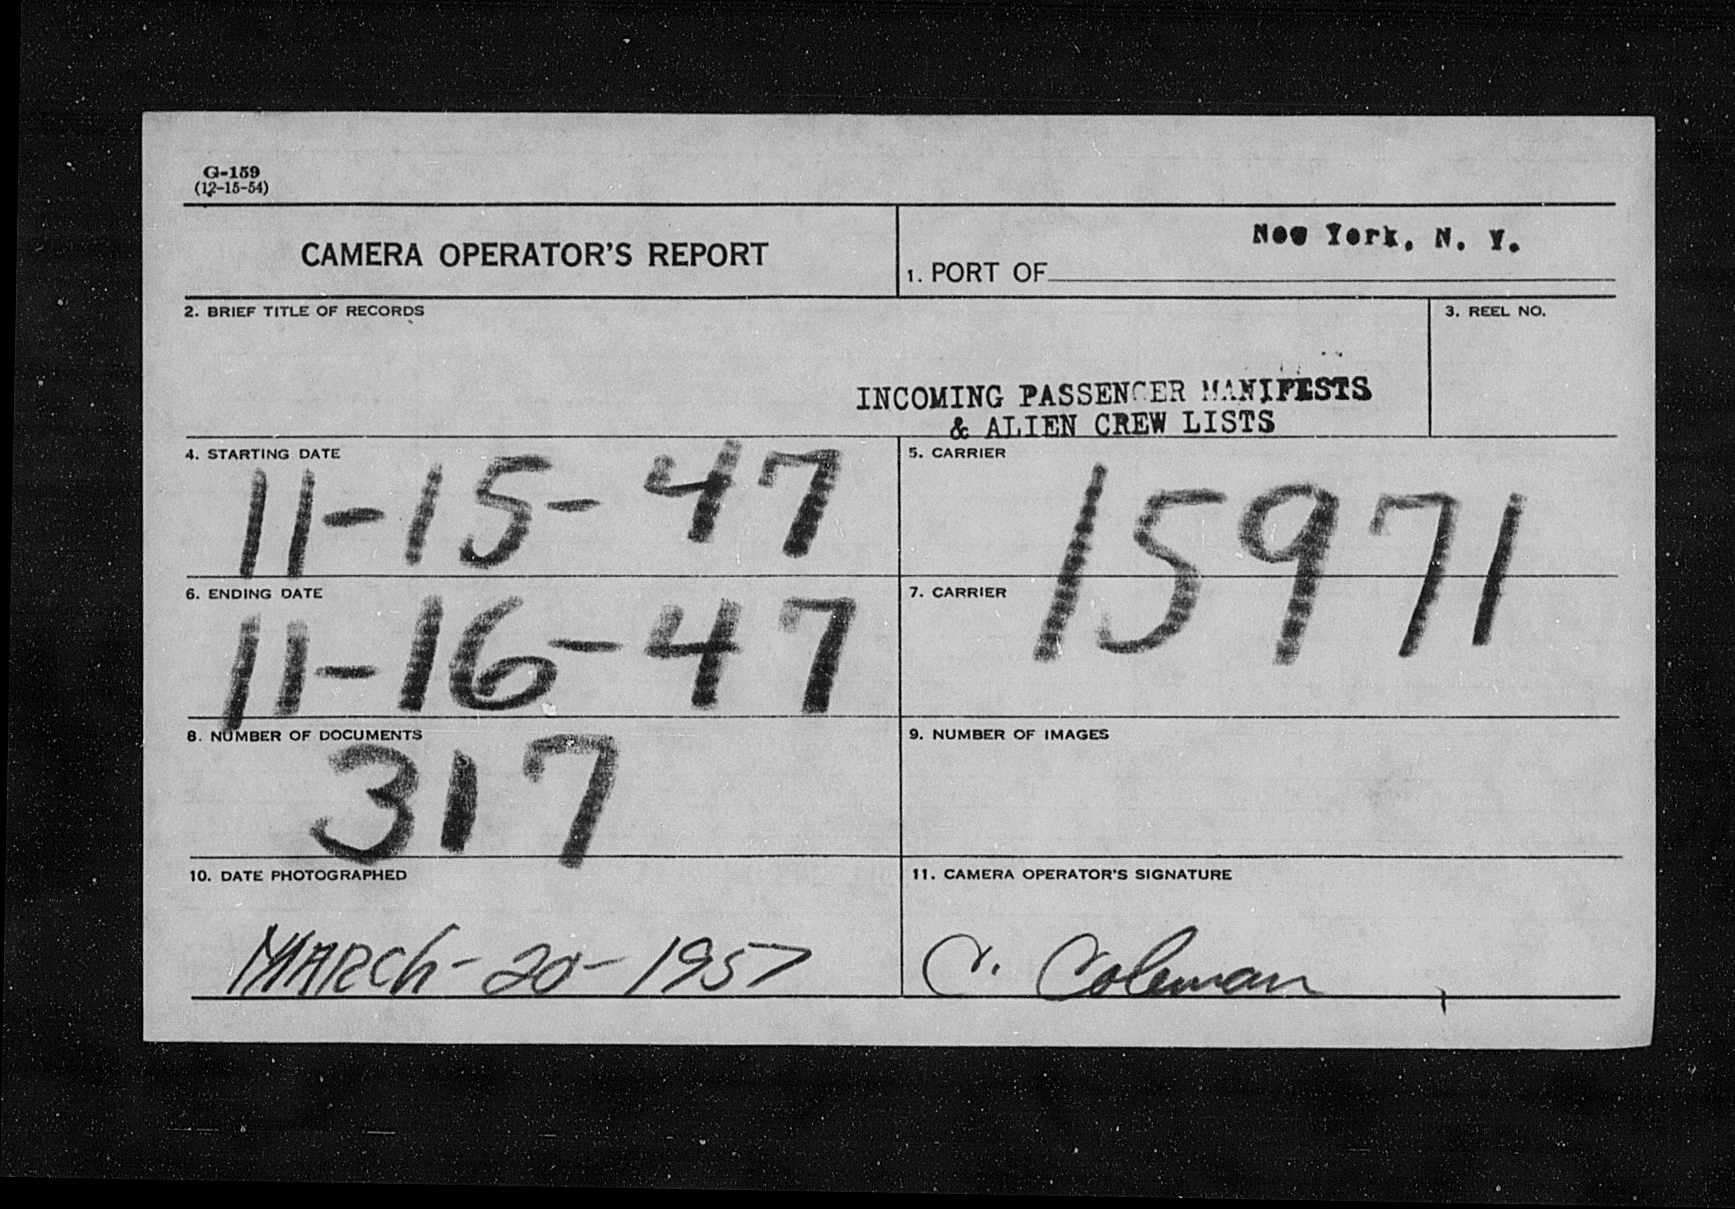 G-159
(12-15-54)
CAMERA OPERATOR'S REPORT
1. PORT OF New York, N. Y.
2. BRIEF TITLE OF RECORDS
3. REEL NO.
INCOMING PASSENGER MANIFESTS
& ALIEN CREW LISTS
4. STARTING DATE
11-15-47
5. CARRIER
15971
6. ENDING DATE
11-16-47
7. CARRIER
8. NUMBER OF DOCUMENTS
317
9. NUMBER OF IMAGES
10. DATE PHOTOGRAPHED
MARCh-20-1957
11. CAMERA OPERATOR'S SIGNATURE
C. Coleman